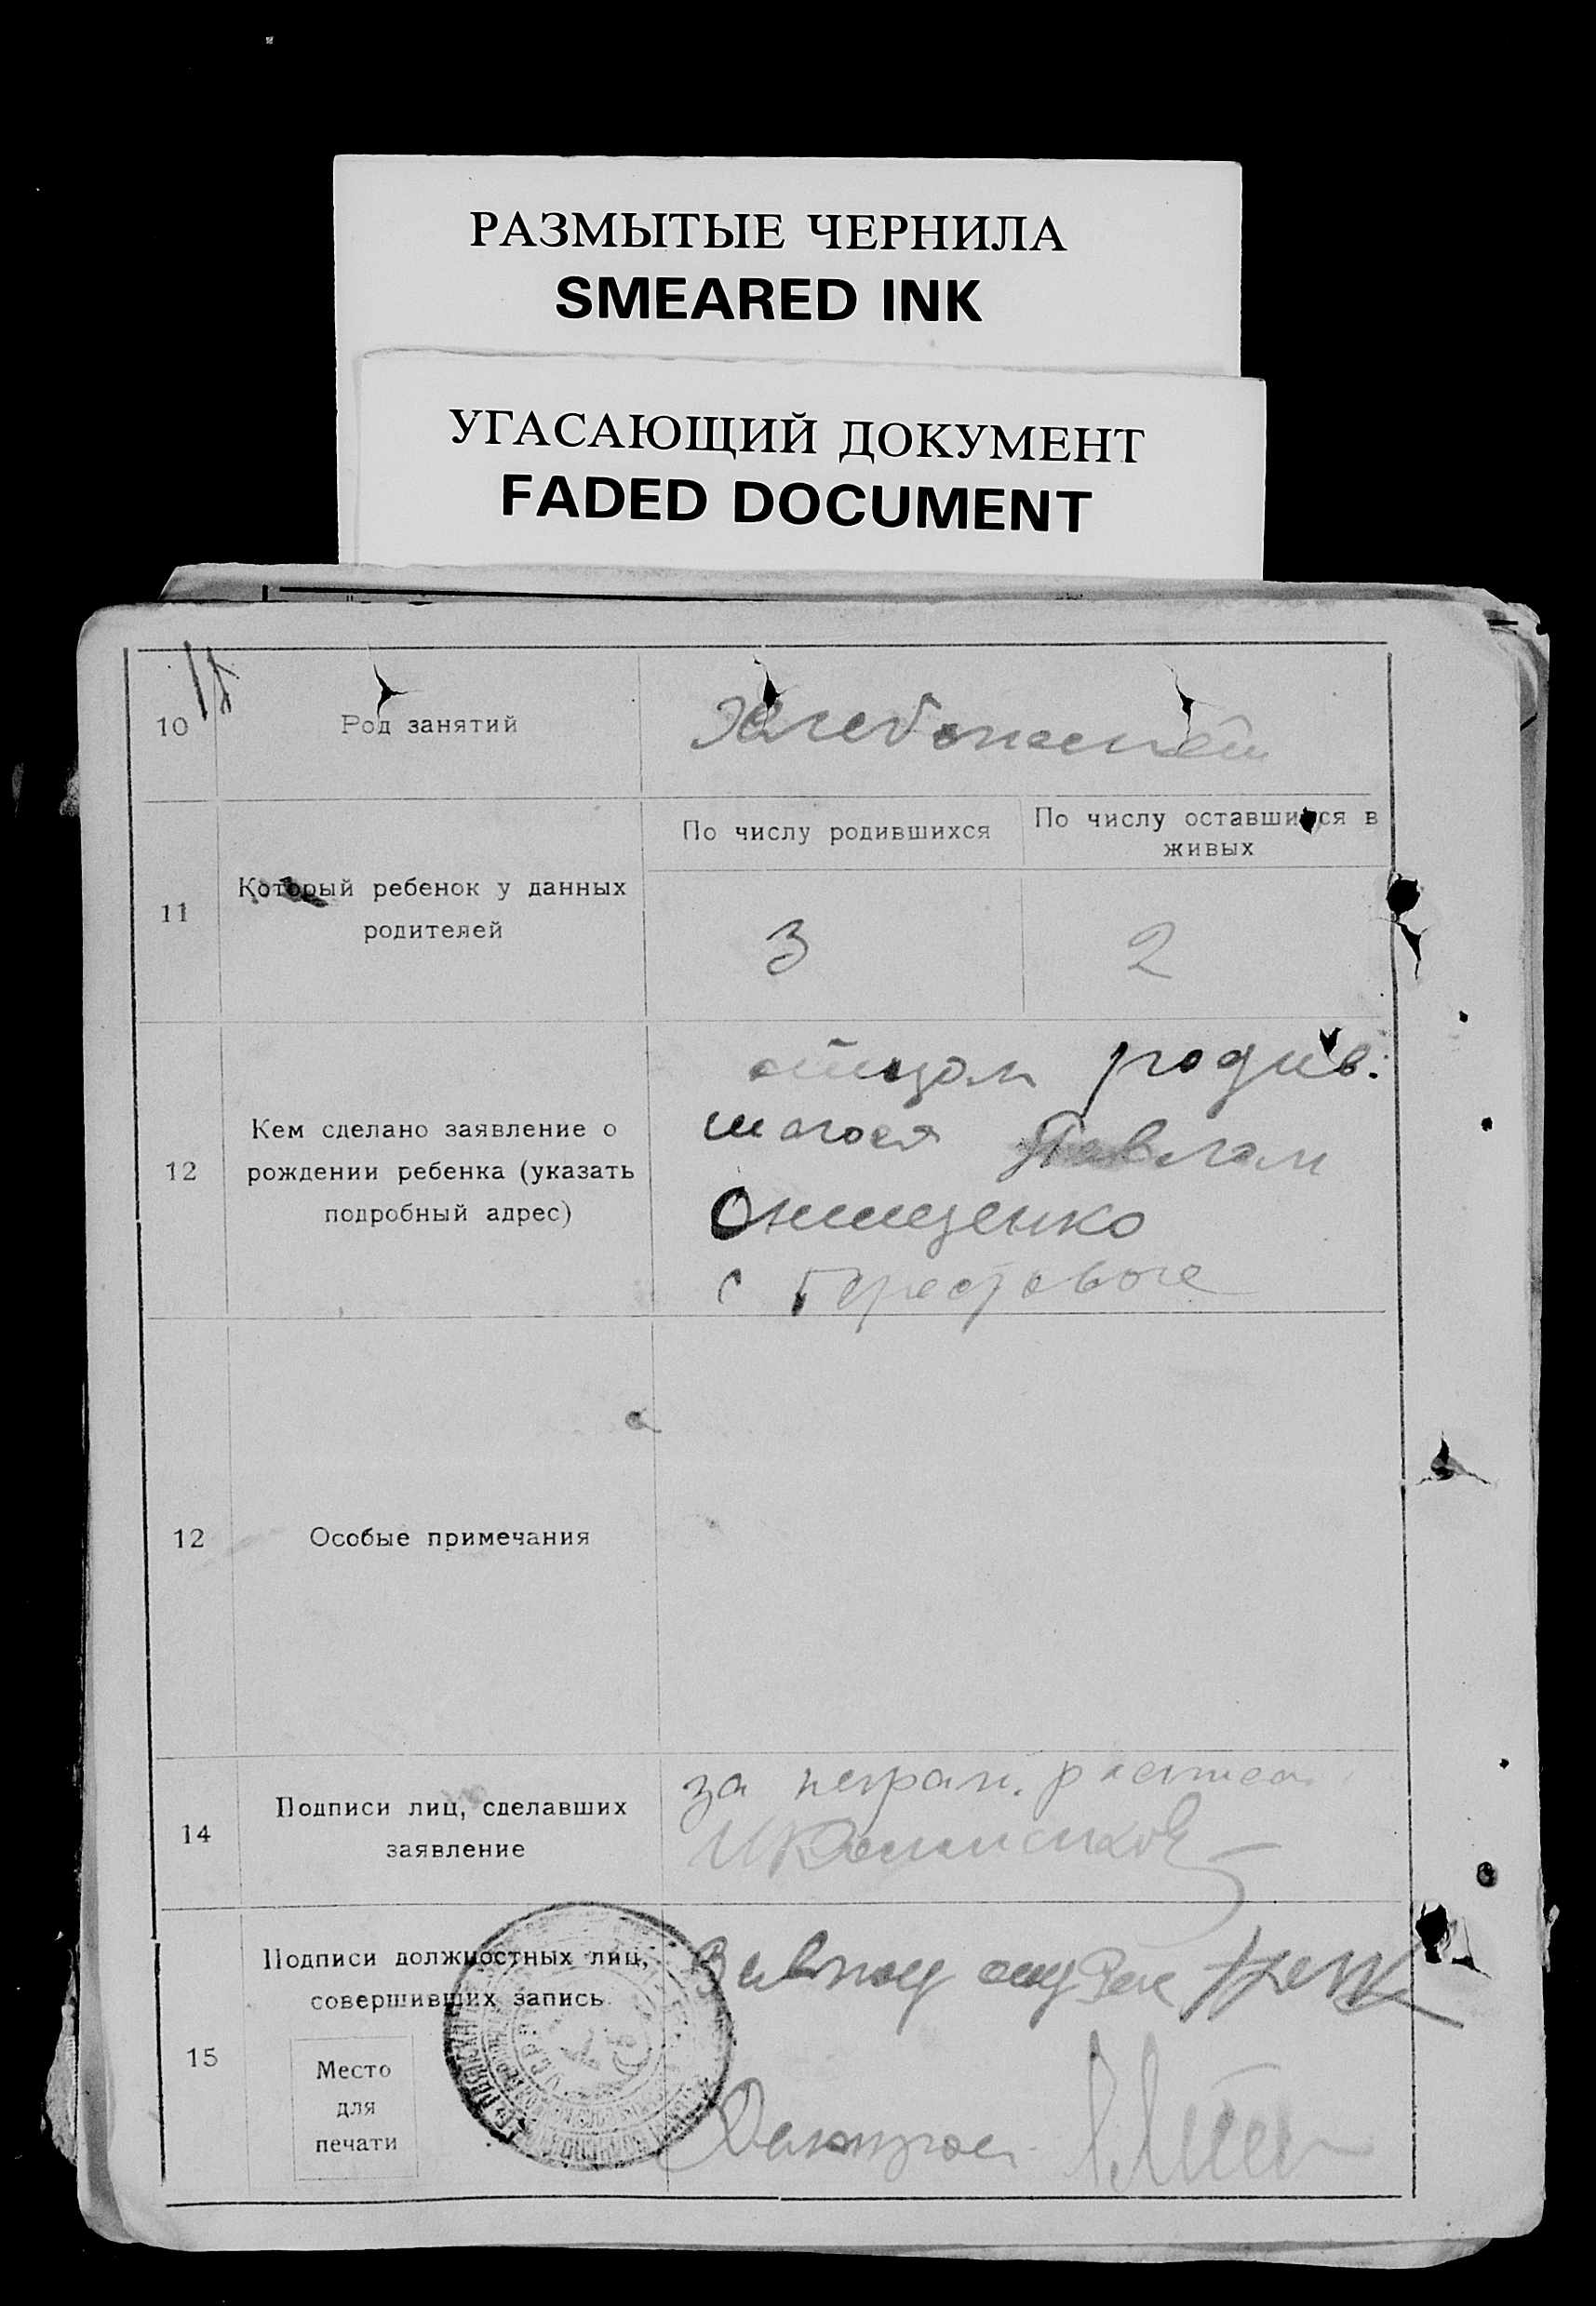 РАЗМЫТЫЕ ЧЕРНИЛА
SMEARED INK
УГАСАЮЩИЙ ДОКУМЕНТ
FADED DOCUMENT
10
Род занятий
Хлебопашец
11
Который ребенок у данных
родителей
По числу родившихся
По числу оставшихся в
живых
3
2
12
Кем сделано заявление о
рождении ребенка (указать
подробный адрес)
отцом родив.
шагося Павлом
Онищенко
с Берестовое
12
Особые примечания
14
Подписи лиц, сделавших
заявление
за неграм.
15
Подписи должностных лиц,
совершивших запись.
Место
для
печати
Делопроиз.